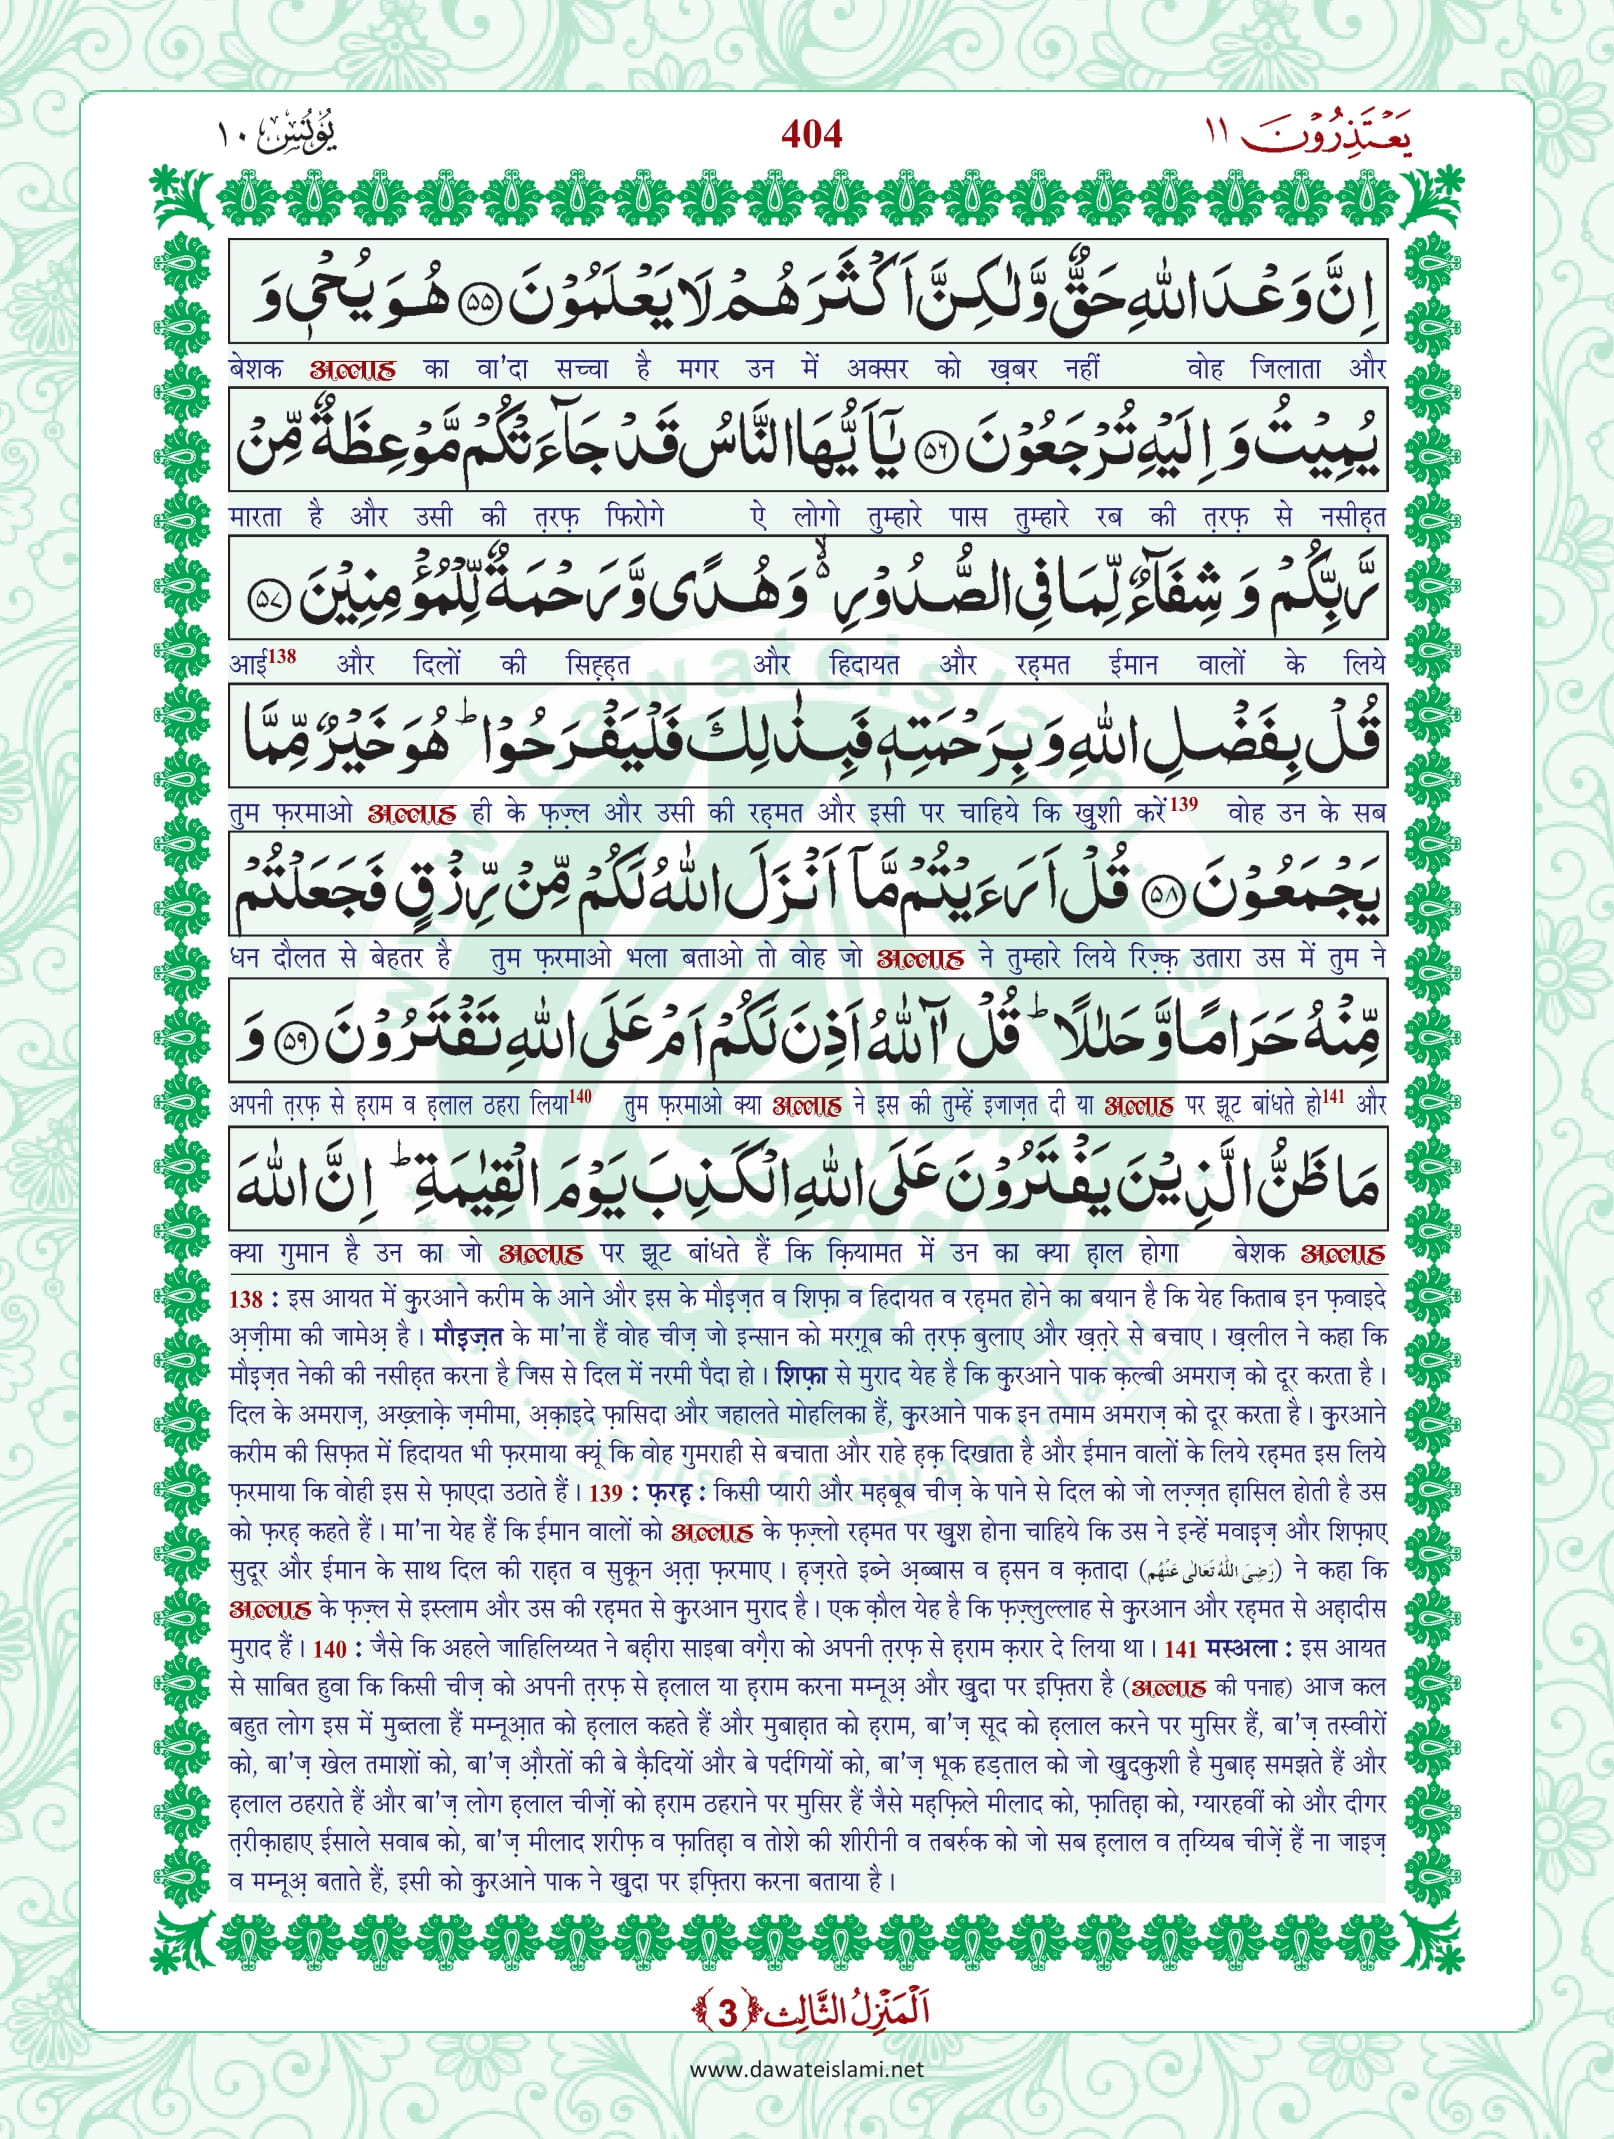 يَعْتَذِرُوْنَ ١١
404
يُوْنُس ١٠
اِنَّ وَعْدَ اللّٰهِ حَقٌّ وَّلٰكِنَّ اَكْثَرَهُمْ لَا يَعْلَمُوْنَ ﴿۵۵﴾ هُوَ يُحْیٖ وَ
बेशक अल्लाह का वा'दा सच्चा है मगर उन में अक्सर को ख़बर नहीं वोह जिलाता और
يُمِيْتُ وَ اِلَيْهِ تُرْجَعُوْنَ ﴿۵۶﴾ يٰۤاَيُّهَا النَّاسُ قَدْ جَآءَتْكُمْ مَّوْعِظَةٌ مِّنْ
मारता है और उसी की त़रफ़ फिरोगे ऐ लोगो तुम्हारे पास तुम्हारे रब की त़रफ़ से नसीह़त
رَّبِّكُمْ وَ شِفَآءٌ لِّمَا فِی الصُّدُوْرِ ۙ۬ وَ هُدًی وَّ رَحْمَةٌ لِّلْمُؤْمِنِيْنَ ﴿۵۷﴾
आई138 और दिलों की सिह़्ह़त और हिदायत और रह़मत ईमान वालों के लिये
قُلْ بِفَضْلِ اللّٰهِ وَ بِرَحْمَتِهٖ فَبِذٰلِكَ فَلْيَفْرَحُوْا ؕ هُوَ خَيْرٌ مِّمَّا
तुम फ़रमाओ अल्लाह ही के फ़ज़्ल और उसी की रह़मत और इसी पर चाहिये कि ख़ुशी करें139 वोह उन के सब
يَجْمَعُوْنَ ﴿۵۸﴾ قُلْ اَرَءَيْتُمْ مَّاۤ اَنْزَلَ اللّٰهُ لَكُمْ مِّنْ رِّزْقٍ فَجَعَلْتُمْ
धन दौलत से बेहतर है तुम फ़रमाओ भला बताओ तो वोह जो अल्लाह ने तुम्हारे लिये रिज़्क़ उतारा उस में तुम ने
مِّنْهُ حَرَامًا وَّ حَلٰلًا ؕ قُلْ آٰللّٰهُ اَذِنَ لَكُمْ اَمْ عَلَی اللّٰهِ تَفْتَرُوْنَ ﴿۵۹﴾ وَ
अपनी त़रफ़ से ह़राम व ह़लाल ठहरा लिया140 तुम फ़रमाओ क्या अल्लाह ने इस की तुम्हें इजाज़त दी या अल्लाह पर झूट बांधते हो141 और
مَا ظَنُّ الَّذِيْنَ يَفْتَرُوْنَ عَلَی اللّٰهِ الْكَذِبَ يَوْمَ الْقِيٰمَةِ ؕ اِنَّ اللّٰهَ
क्या गुमान है उन का जो अल्लाह पर झूट बांधते हैं कि क़ियामत में उन का क्या ह़ाल होगा बेशक अल्लाह
138 : इस आयत में क़ुरआने करीम के आने और इस के मौइज़त व शिफ़ा व हिदायत व रह़मत होने का बयान है कि येह किताब इन फ़वाइदे
अज़ीमा की जामेअ़ है। मौइज़त के मा'ना हैं वोह चीज़ जो इन्सान को मरग़ूब की त़रफ़ बुलाए और ख़त़रे से बचाए। ख़लील ने कहा कि
मौइज़त नेकी की नसीह़त करना है जिस से दिल में नरमी पैदा हो। शिफ़ा से मुराद येह है कि क़ुरआने पाक क़ल्बी अमराज़ को दूर करता है।
दिल के अमराज़, अख़्लाक़े ज़मीमा, अ़क़ाइदे फ़ासिदा और जहालते मोहलिका हैं, क़ुरआने पाक इन तमाम अमराज़ को दूर करता है। क़ुरआने
करीम की सिफ़त में हिदायत भी फ़रमाया क्यूं कि वोह गुमराही से बचाता और राहे ह़क़ दिखाता है और ईमान वालों के लिये रह़मत इस लिये
फ़रमाया कि वोही इस से फ़ाएदा उठाते हैं। 139 : फ़रह़ : किसी प्यारी और मह़बूब चीज़ के पाने से दिल को जो लज़्ज़त ह़ासिल होती है उस
को फ़रह़ कहते हैं। मा'ना येह हैं कि ईमान वालों को अल्लाह के फ़ज़्लो रह़मत पर ख़ुश होना चाहिये कि उस ने इन्हें मवाइज़ और शिफ़ाए
सुदूर और ईमान के साथ दिल की राह़त व सुकून अ़त़ा फ़रमाए। ह़ज़रते इब्ने अ़ब्बास व ह़सन व क़तादा (رَضِیَ اللّٰهُ تَعَالٰی عَنْهُم) ने कहा कि
अल्लाह के फ़ज़्ल से इस्लाम और उस की रह़मत से क़ुरआन मुराद है। एक क़ौल येह है कि फ़ज़्लुल्लाह से क़ुरआन और रह़मत से अह़ादीस
मुराद हैं। 140 : जैसे कि अहले जाहिलिय्यत ने बह़ीरा साइबा वग़ैरा को अपनी त़रफ़ से ह़राम क़रार दे लिया था। 141 मस्अला : इस आयत
से साबित हुवा कि किसी चीज़ को अपनी त़रफ़ से ह़लाल या ह़राम करना मम्नूअ़ और ख़ुदा पर इफ़्तिरा है (अल्लाह की पनाह) आज कल
बहुत लोग इस में मुब्तला हैं मम्नूआ़त को ह़लाल कहते हैं और मुबाह़ात को ह़राम, बा'ज़ सूद को ह़लाल करने पर मुसिर हैं, बा'ज़ तस्वीरों
को, बा'ज़ खेल तमाशों को, बा'ज़ औ़रतों की बे क़ैदियों और बे पर्दगियों को, बा'ज़ भूक हड़ताल को जो ख़ुदकुशी है मुबाह़ समझते हैं और
ह़लाल ठहराते हैं और बा'ज़ लोग ह़लाल चीज़ों को ह़राम ठहराने पर मुसिर हैं जैसे मह़फ़िले मीलाद को, फ़ातिह़ा को, ग्यारहवीं को और दीगर
त़रीक़ाहाए ईसाले सवाब को, बा'ज़ मीलाद शरीफ़ व फ़ातिह़ा व तोशे की शीरीनी व तबर्रुक को जो सब ह़लाल व त़य्यिब चीज़ें हैं ना जाइज़
व मम्नूअ़ बताते हैं, इसी को क़ुरआने पाक ने ख़ुदा पर इफ़्तिरा करना बताया है।
اَلْمَنْزِلُ الثَّالِث ﴿3﴾
www.dawateislami.net